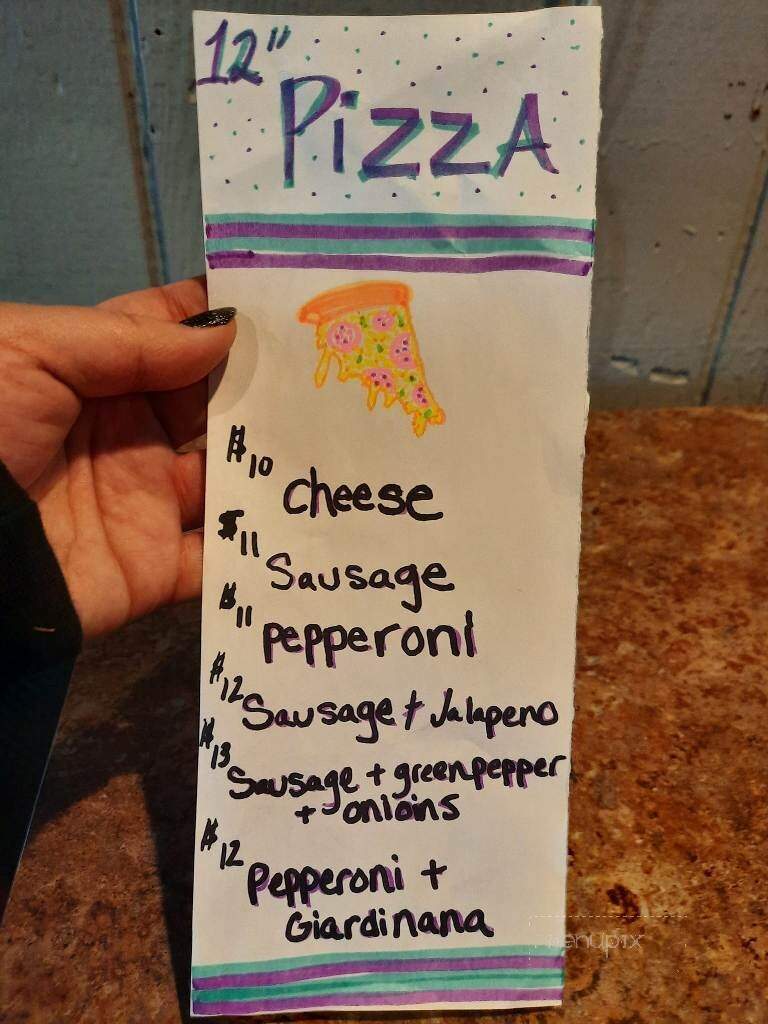 12"
PizzA
$10
cheese
$11
Sausage
$11
pepperoni
$12
Sausage + Jalapeno
$13
Sausage + greenpepper
+ onioins
$12
Pepperoni +
Giardinana
menupix